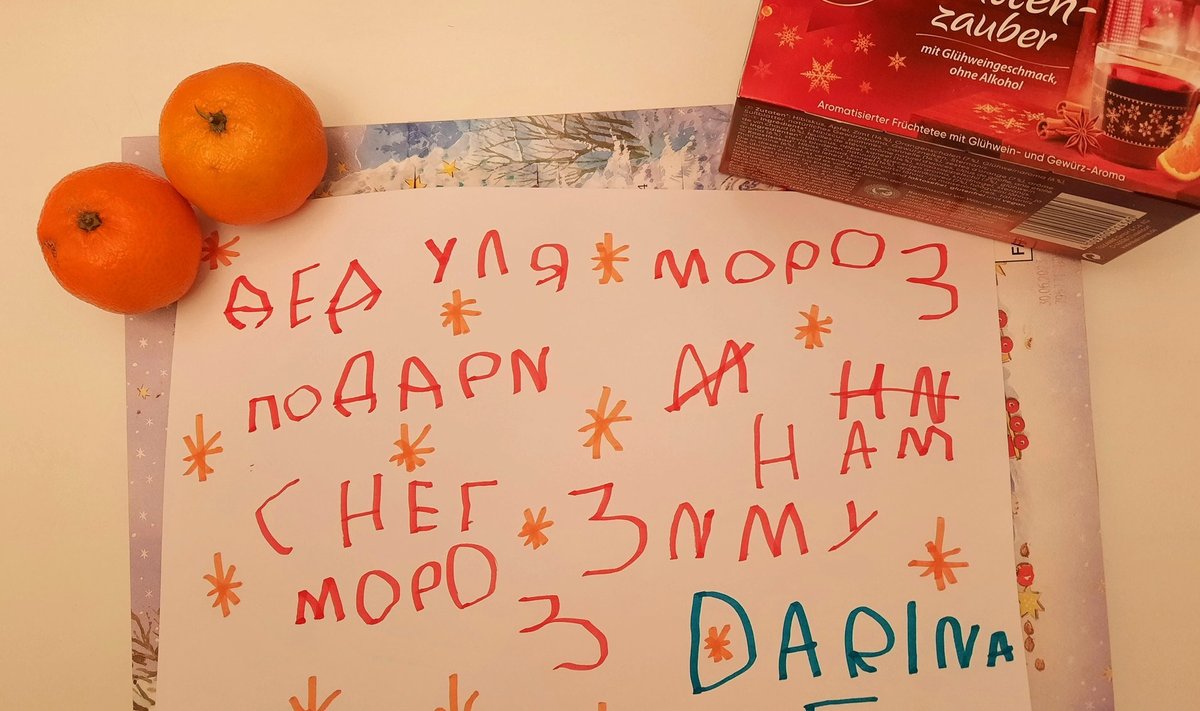 zauber
mit Glühweingeschmack,
ohne Alkohol
Aromatisierter Früchtetee mit Glühwein- und Gewürz-Aroma
ДЕДУЛЯ МОРОЗ
ПОДАРИ
НАМ
СНЕГ ЗИМУ
МОРОЗ
DARINA